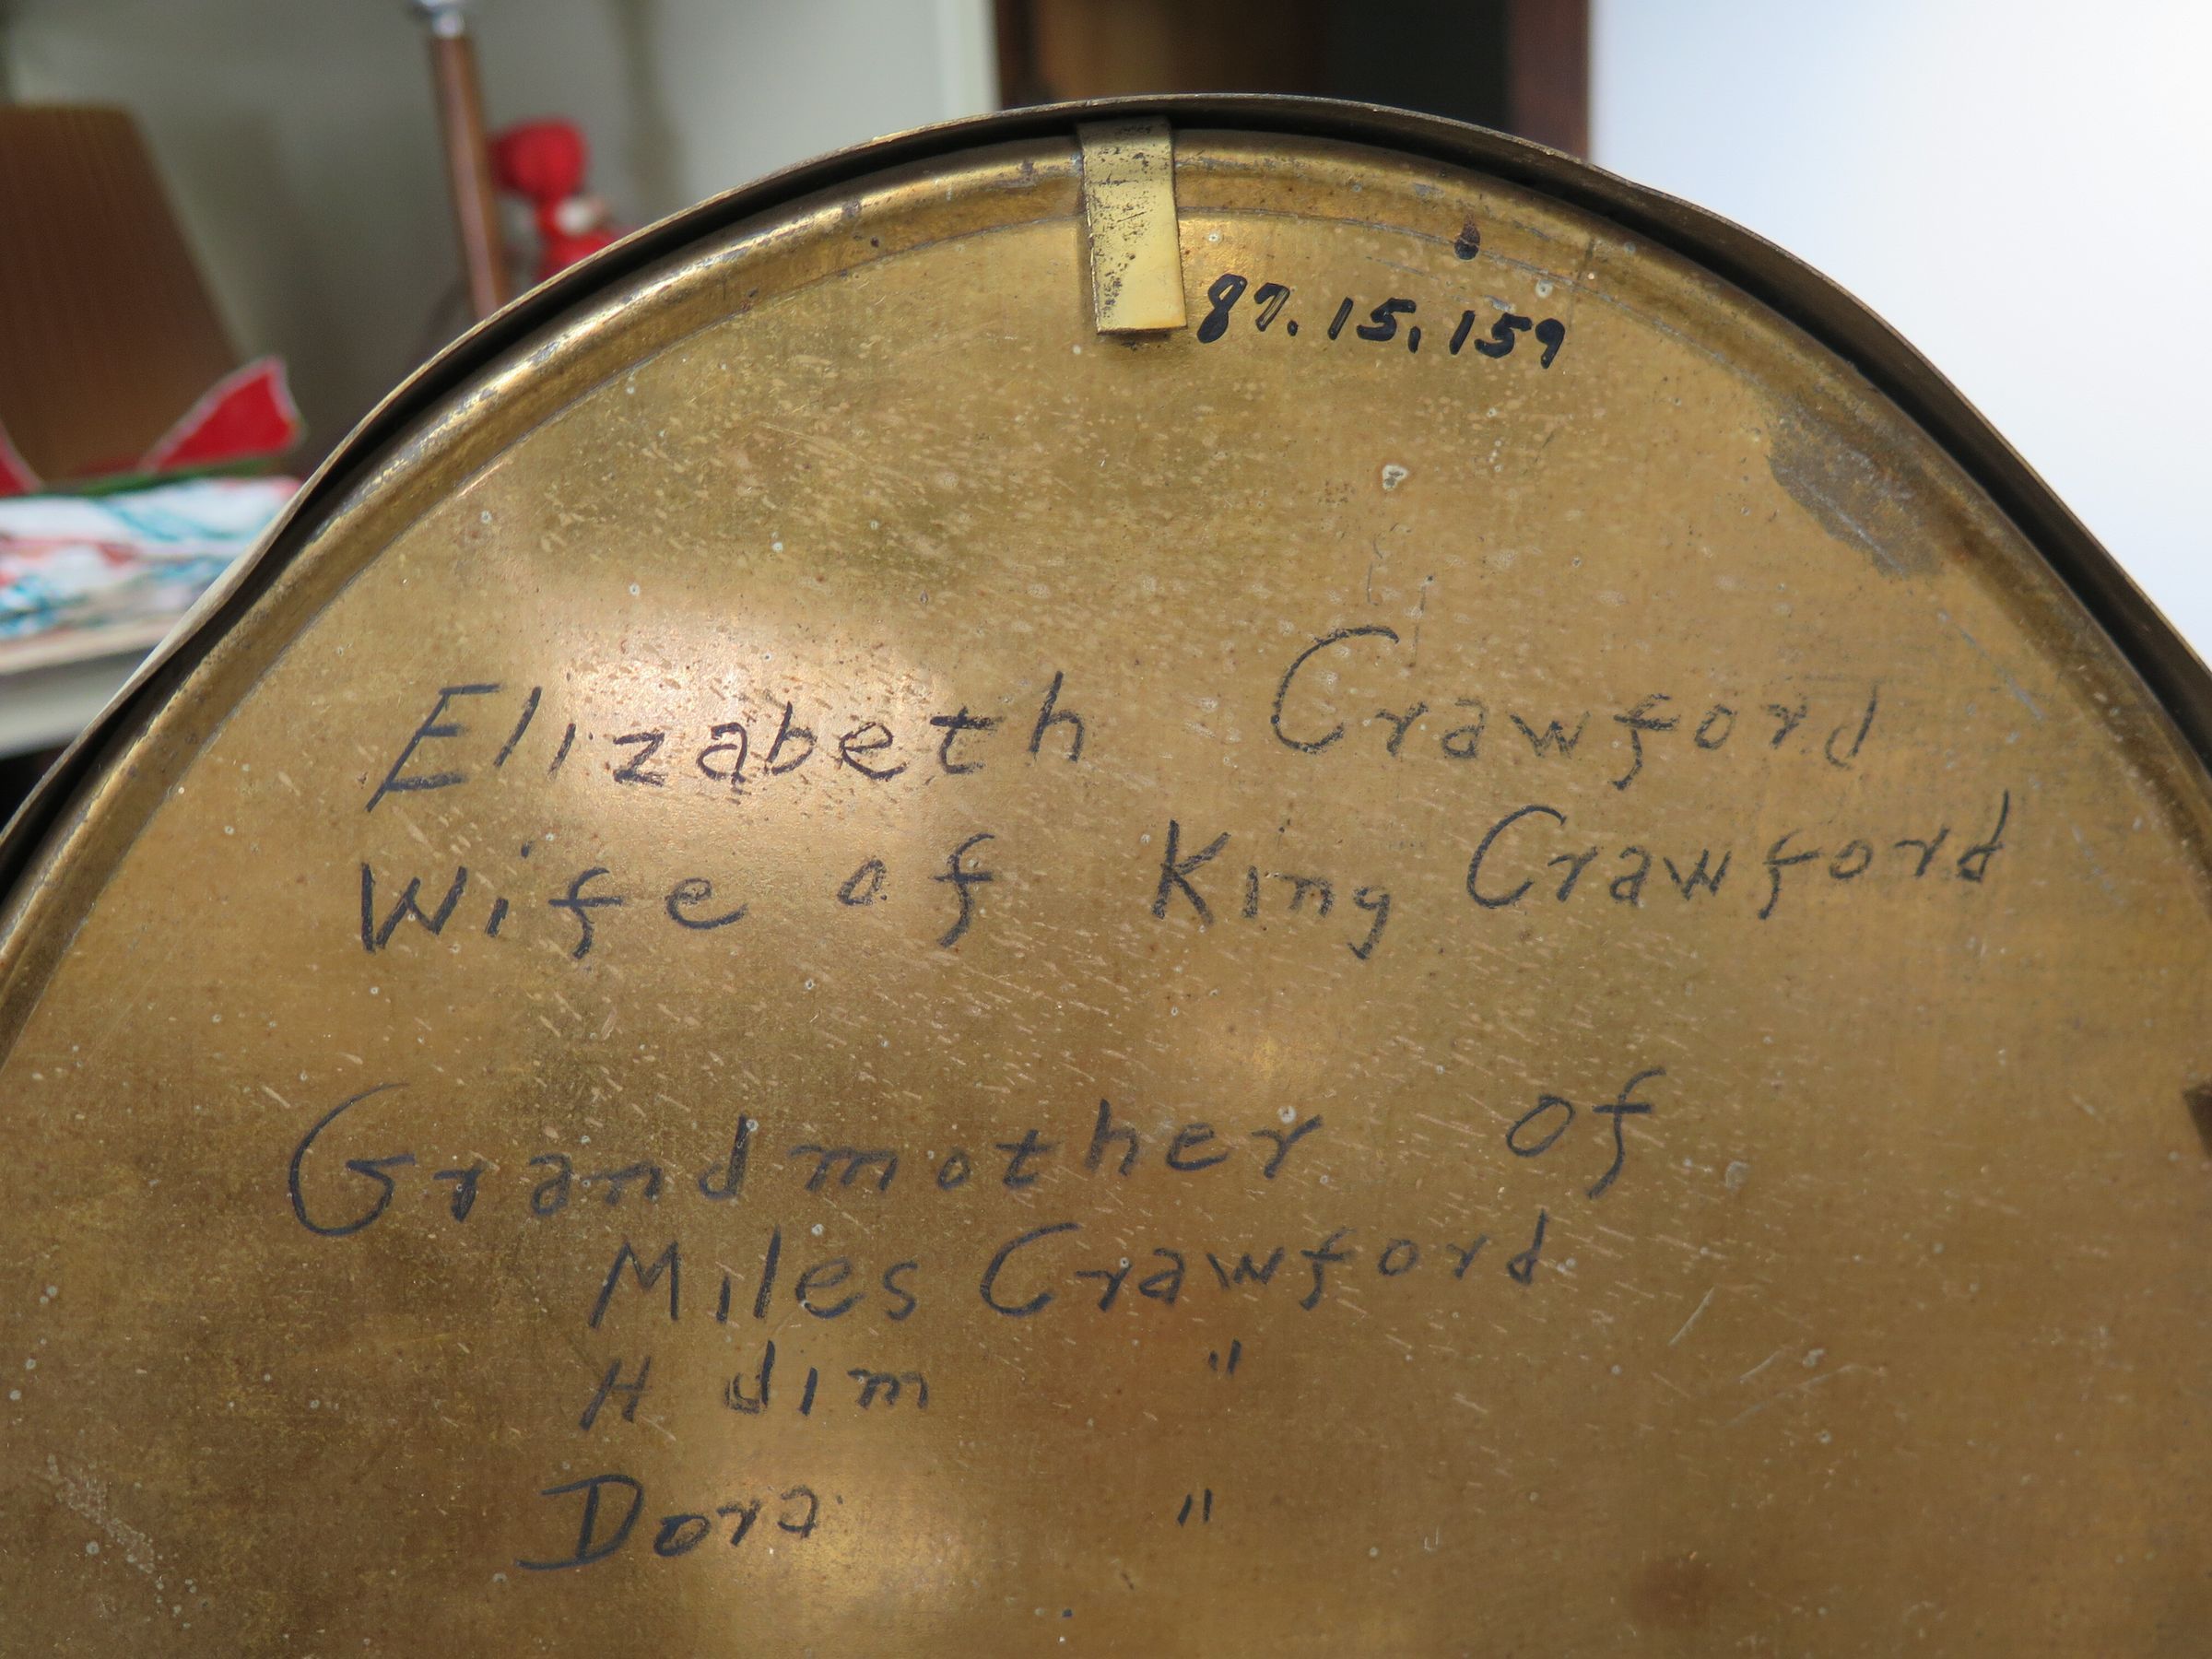 87.15.159
Elizabeth Crawford
Wife of King Crawford
Grandmother of
Miles Crawford
H dim "
Dora "